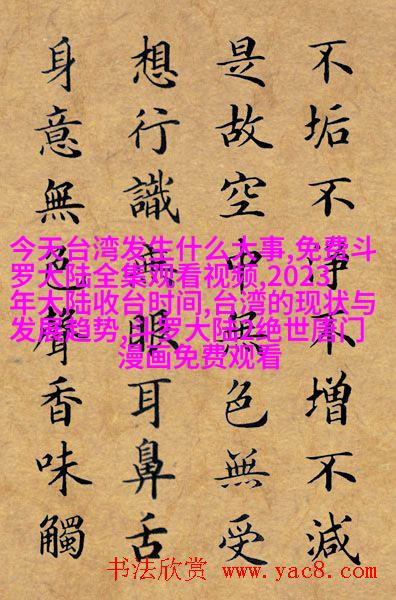 不垢不淨不增不減
是故空中無色無受
想行識無眼耳鼻舌
身意無色聲香味觸
今天台湾发生什么大事,免费斗
罗大陆全集观看视频,2023
年大陆收台时间,台湾的现状与
发展趋势,斗罗大陆2绝世唐门
漫画免费观看
书法欣赏 www.yac8.com